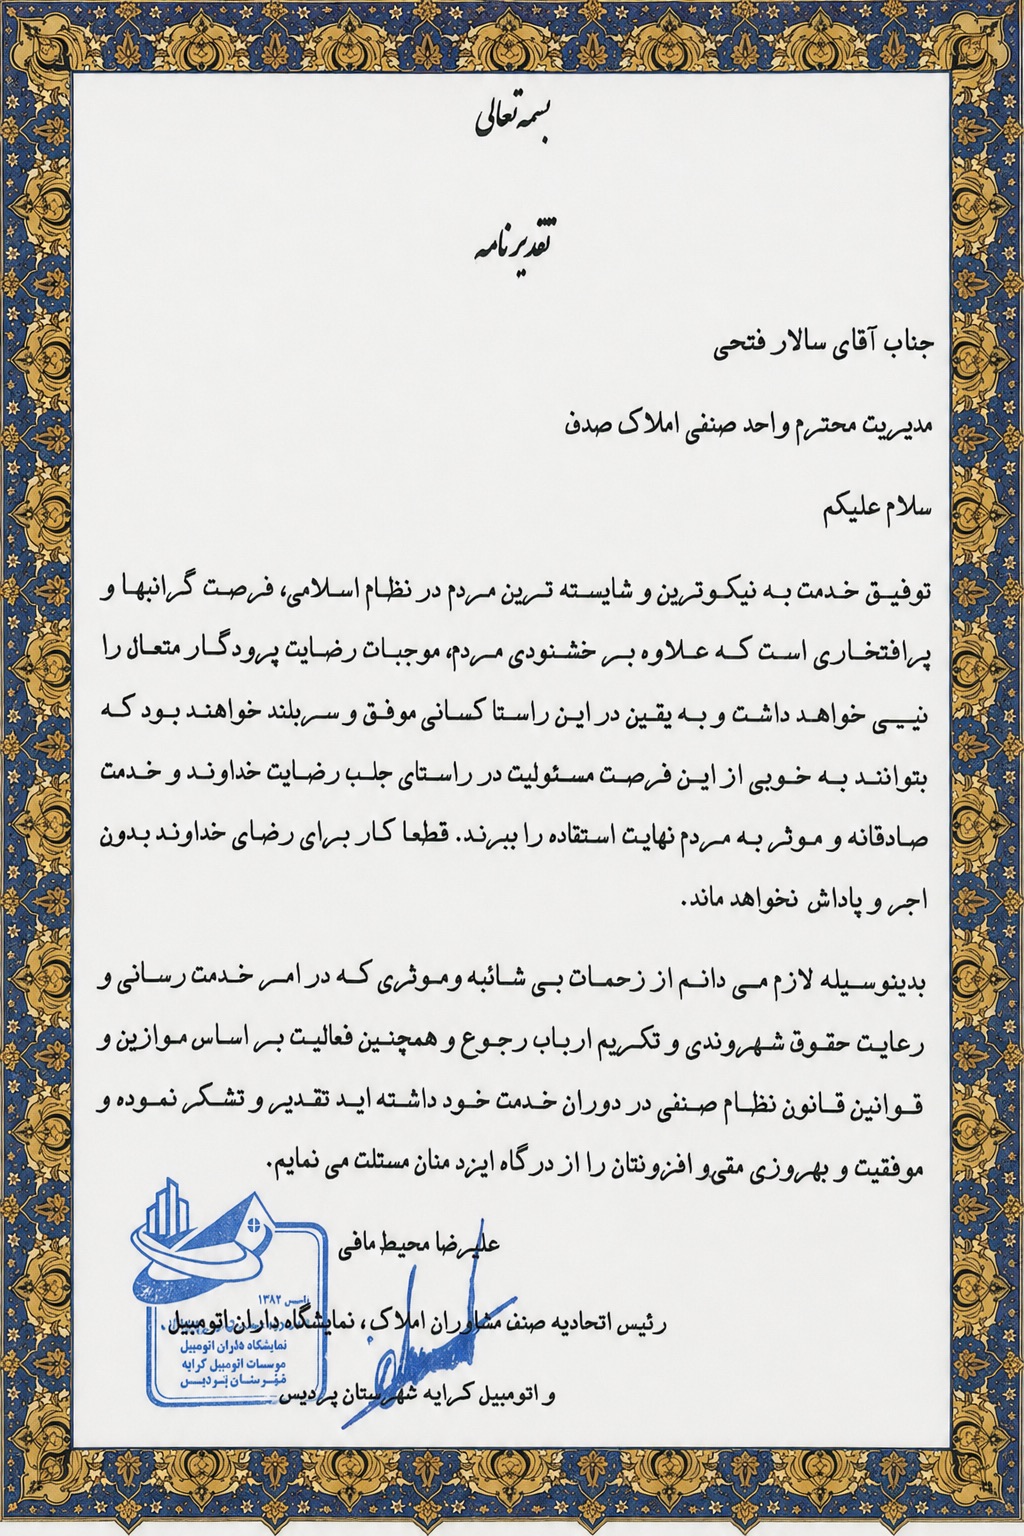 بسمه تعالی
تقدیرنامه
جناب آقای سالار فتحی
مدیریت محترم واحد صنفی املاک صدف
سلام علیکم
توفیق خدمت به نیکوترین و شایسته ترین مردم در نظام اسلامی، فرصت گرانبها و
پرافتخاری است که علاوه بر خشنودی مردم، موجبات رضایت پرودگار متعال را
نیبی خواهد داشت و به یقین در این راستا کسانی موفق و سربلند خواهند بود که
بتوانند به خوبی از این فرصت مسئولیت در راستای جلب رضایت خداوند و خدمت
صادقانه و موثر به مردم نهایت استفاده را ببرند. قطعا کار برای رضای خداوند بدون
اجر و پاداش نخواهد ماند.
بدینوسیله لازم می دانم از زحمات بی شائبه وموثری که در امر خدمت رسانی و
رعایت حقوق شهروندی و تکریم ارباب رجوع و همچنین فعالیت بر اساس موازین و
قوانین قانون نظام صنفی در دوران خدمت خود داشته اید تقدیر و تشکر نموده و
موفقیت و بهروزی مقی‌و افزونتان را از درگاه ایزد منان مسئلت می نمایم.
علیرضا محیط مافی
رئیس اتحادیه صنف مشاوران املاک، نمایشگاه داران اتومبیل
و اتومبیل کرایه شهرستان پردیس
۱۳۸۲
نمایشگاه داران اتومبیل
موسسات اتومبیل کرایه